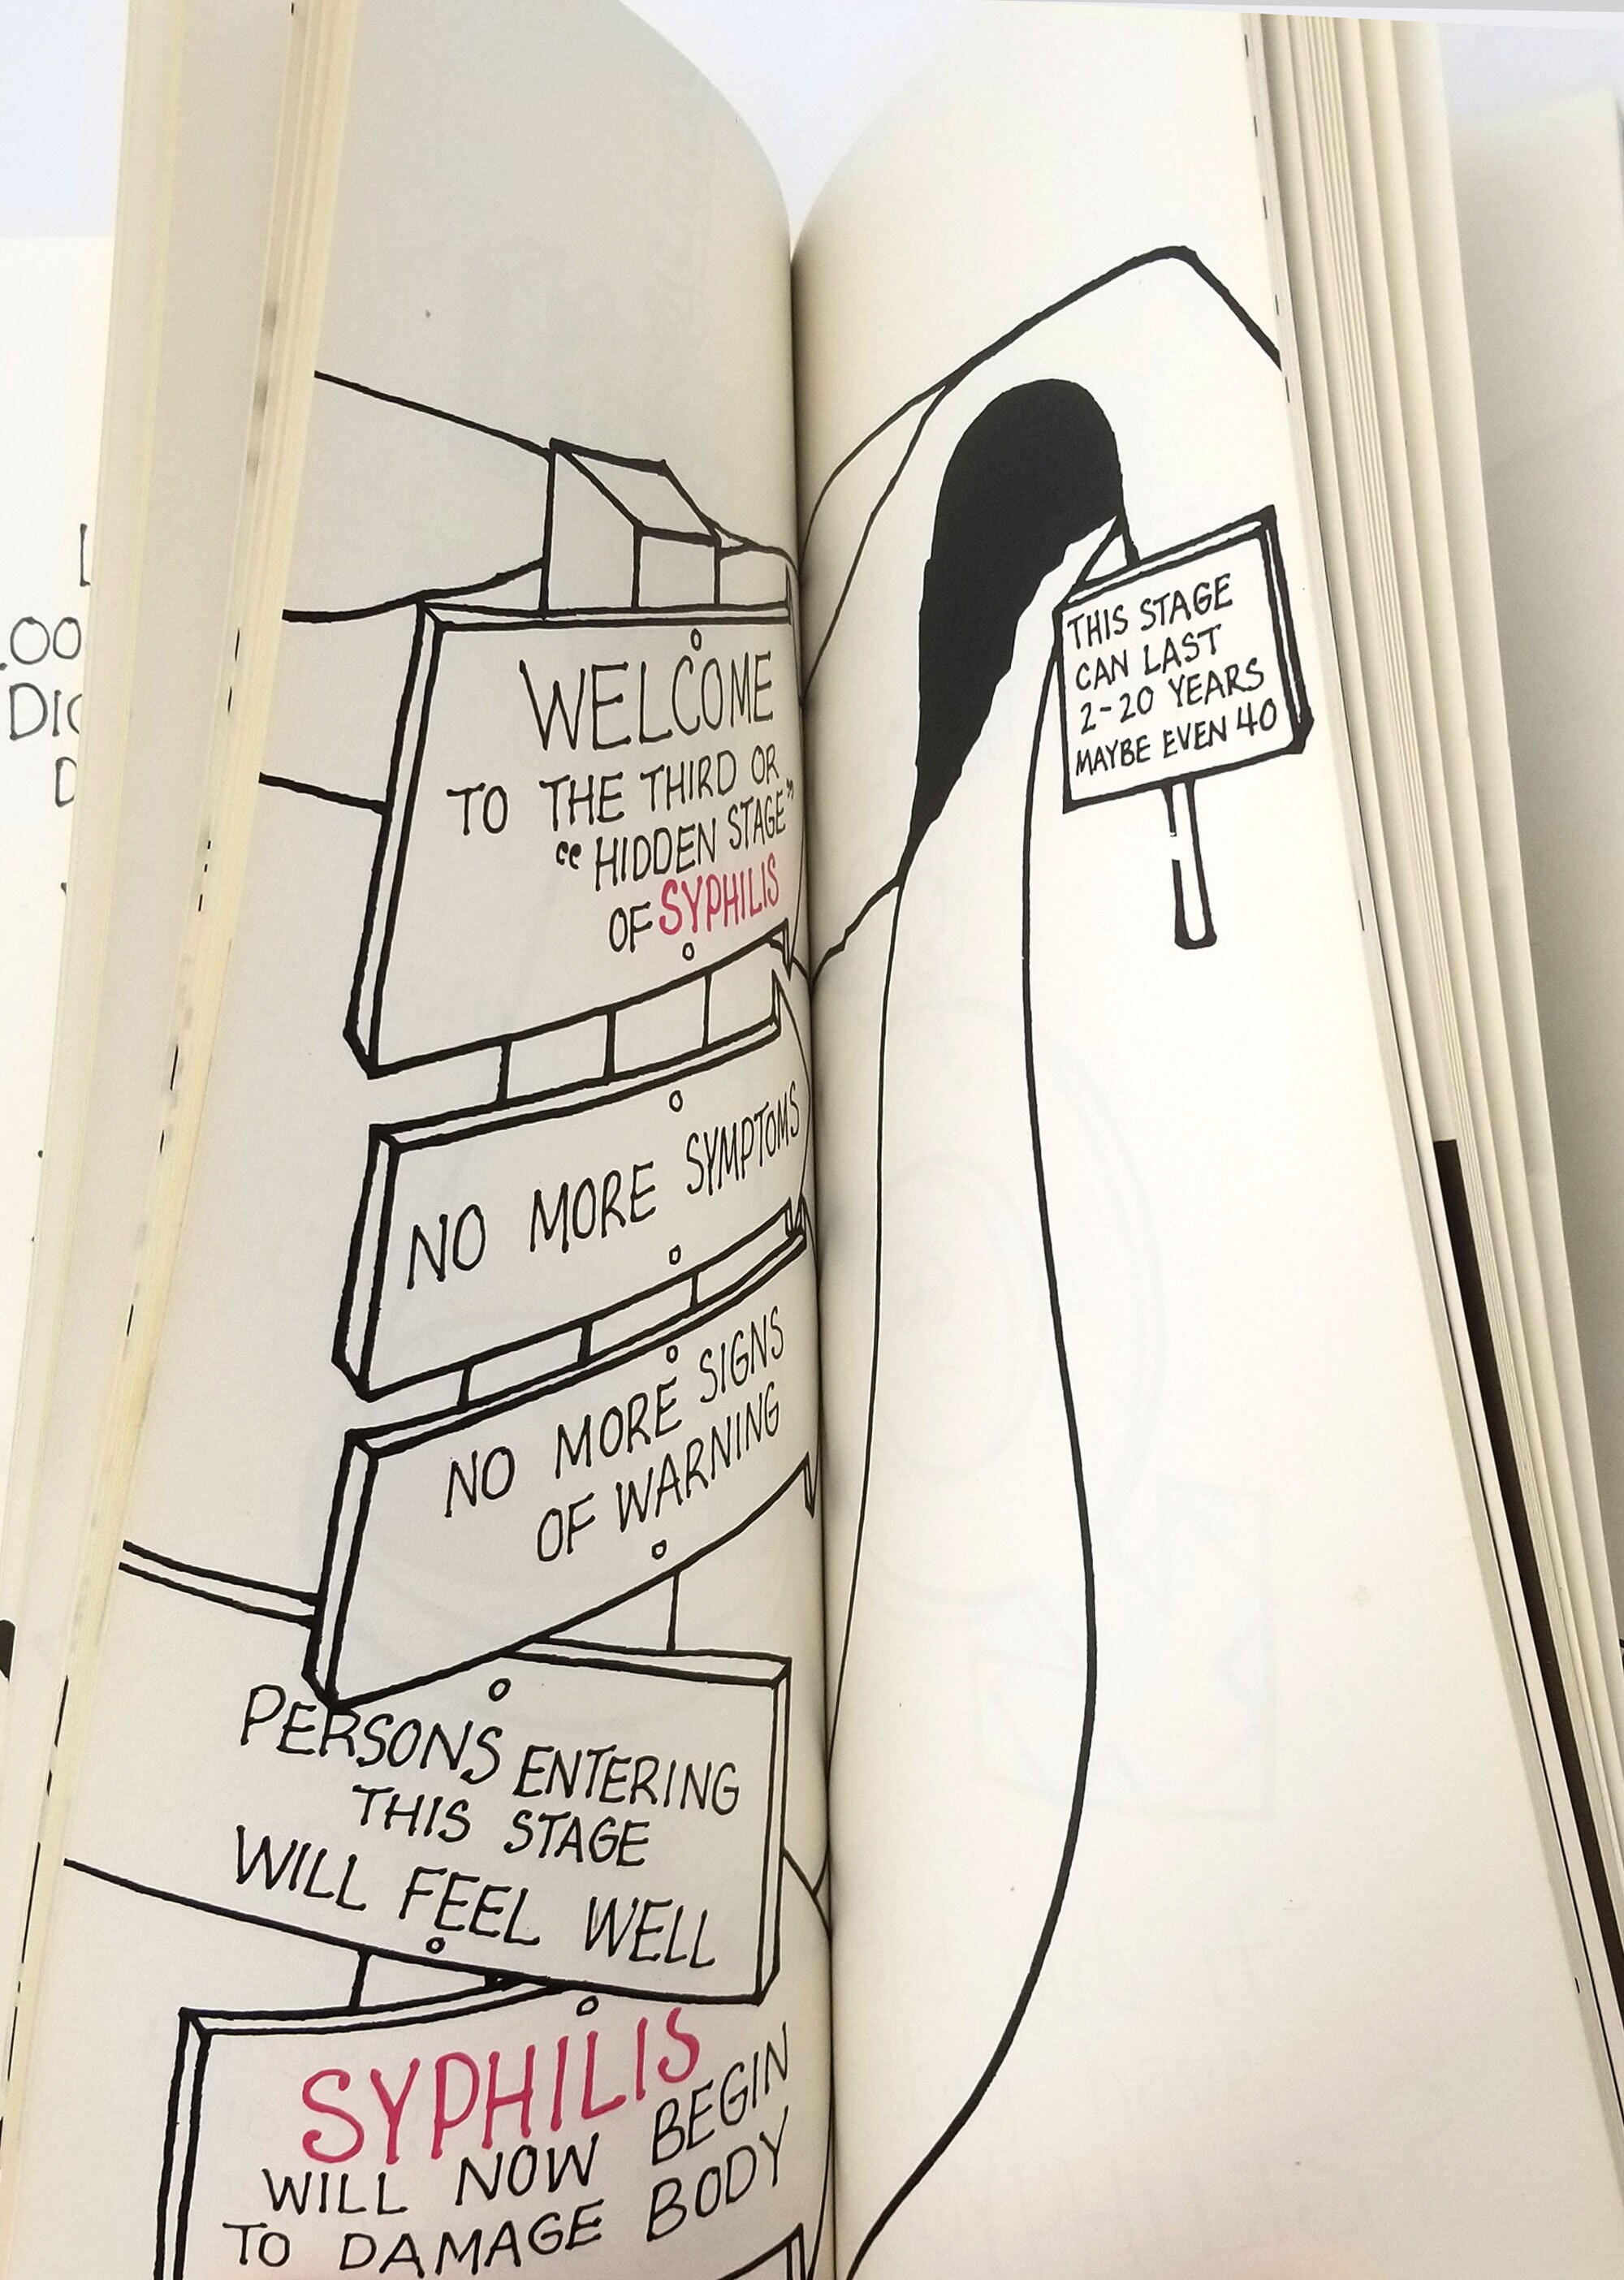 WELCOME
TO THE THIRD OR
"HIDDEN STAGE"
OF SYPHILIS
NO MORE SYMPTOMS
NO MORE SIGNS
OF WARNING
PERSONS ENTERING
THIS STAGE
WILL FEEL WELL
SYPHILIS
WILL NOW BEGIN
TO DAMAGE BODY
THIS STAGE
CAN LAST
2-20 YEARS
MAYBE EVEN 40